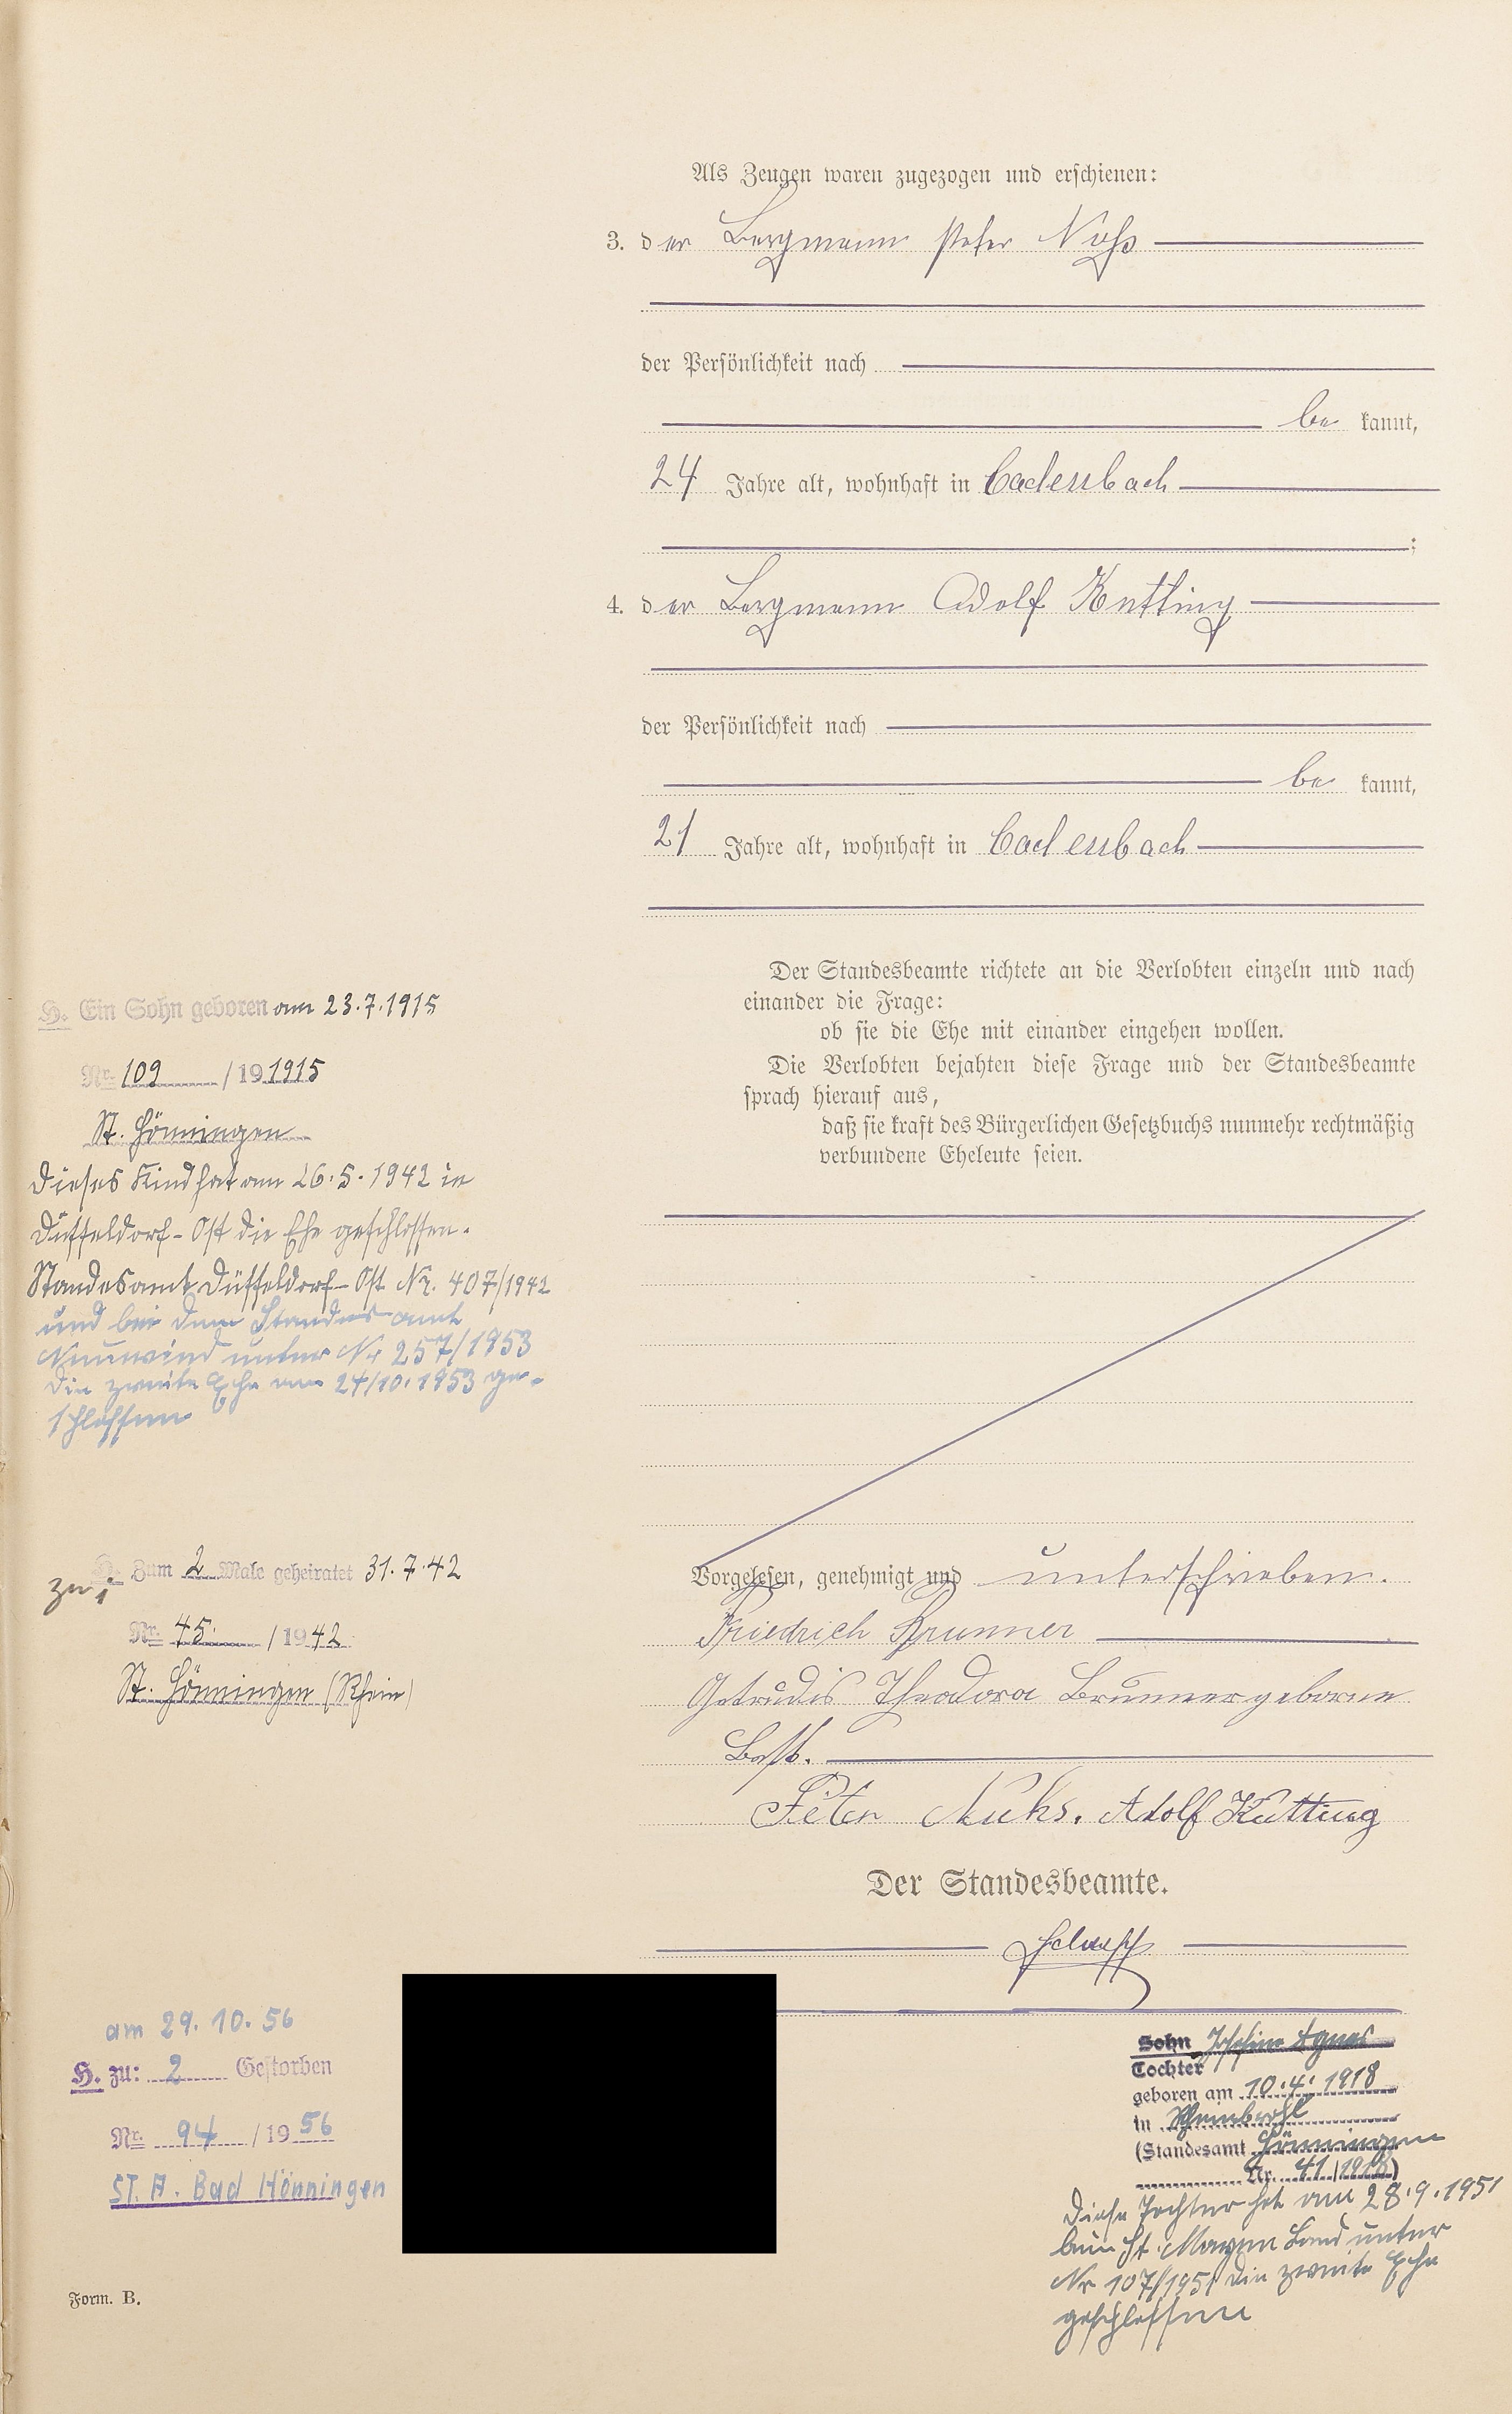 Als Zeugen waren zugezogen und erschienen:
3. der Bergmann Peter
der Persönlichkeit nach
be kannt,
24 Jahre alt, wohnhaft in Cadenbach
;
4. der Bergmann Adolf Kutting
der Persönlichkeit nach
be kannt,
21 Jahre alt, wohnhaft in Cadenbach
Der Standesbeamte richtete an die Verlobten einzeln und nach
einander die Frage:
ob sie die Ehe mit einander eingehen wollen.
Die Verlobten bejahten diese Frage und der Standesbeamte
sprach hierauf aus,
daß sie kraft des Bürgerlichen Gesetzbuchs nunmehr rechtmäßig
verbundene Eheleute seien.
Vorgelesen, genehmigt und unterschrieben.
Friedrich Brunner
Getrudis Theodora Brunner geborne
Peter Adolf Kutting
Der Standesbeamte.
H. Ein Sohn geboren am 23.7.1915
Nr. 109 / 19 1915
St. Hönningen
Dieses Kind hat am 26.5.1942 in
Düsseldorf-Ost die Ehe geschlossen.
Standesamt Düsseldorf-Ost Nr. 407/1942
und bei dem Standesamt
Neuwied unter Nr 257/1953
die zweite Ehe am 24/10.1953 ge-
schlossen
zu 1 H. Zum 2 Male geheiratet 31.7.42
Nr. 45 / 19 42
St. Hönningen (Rhein)
am 29.10.56
H. zu: 2 Gestorben
Nr. 94 / 19 56
ST. A. Bad Hönningen
Sohn Agnes
Tochter
geboren am 10.4.1918
in Rheinbrohl
(Standesamt Hönningen
Nr. 41/1918)
Diese Tochter hat am 28.9.1951
beim St. Mayen Land unter
Nr 107/1951 die zweite Ehe
geschlossen
Form. B.